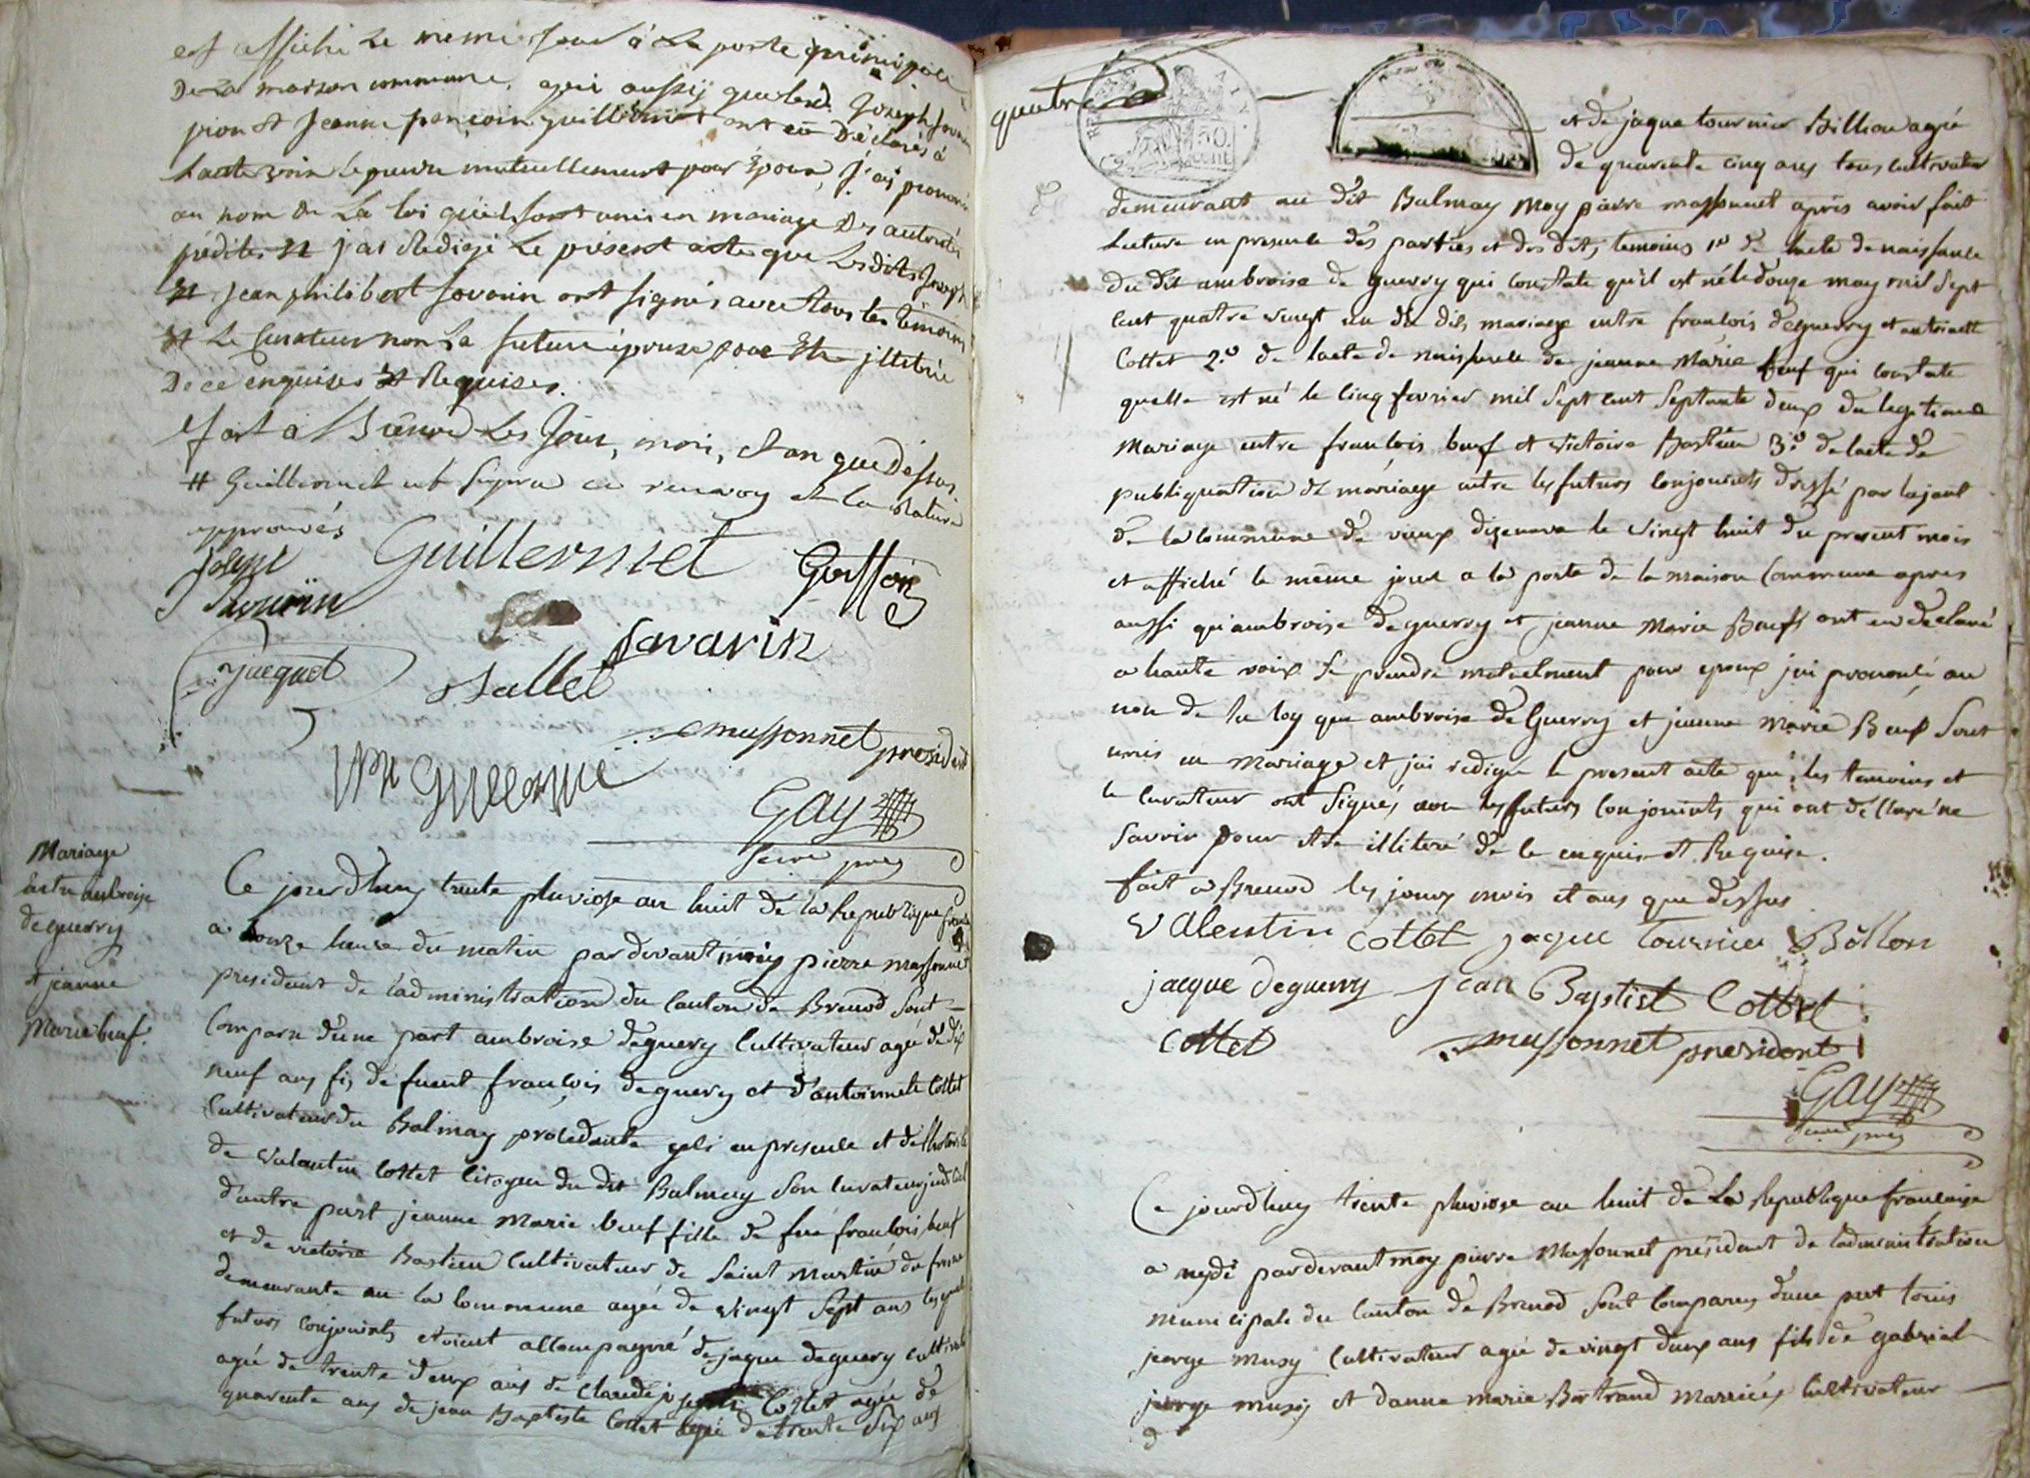 est affiché Le meme jour à La porte principale
De La maison commune, apres aussij que lesd. Joseph
pion et Jeanne françoise guillermet ont eu Déclarés à
haute voix se prendre mutuellement pour Epoux, j'ai prononcé
au nom de La Loi qu'ils sont unis en mariage Des autorités
prédites Et j'ai Redigé Le présent acte que Lesdits Joseph
Et jean philibert Savarin ont signés avec tous les témoins
Et Le Curateur non La future épouse pour Etre jlletrée
De ce enquises Et Requises.
fait à Brénod Les Jour, mois, et an que Dessus
# Guillermet
approuvés
Joseph Savarin Guillermet Goiffon
Savarin
Jacquet Ballet
massonnet president
Gay
Mariage
Entre ambroise
deguerry
et jeanne
Marie beuf.
Ce jourdhuy trente pluviose an huit de la Republique
a honze heure du matin pardevant moy pierre massonnet
president de l'administration du Canton de Brenod sont
Comparu d'une part ambroise deguery Cultivateur agé de dix
neuf ans fis de fuent françois deguery et d'antoinnete Cottet
Cultivateur du Balmay procedante yeli en presence et de lhotorité
de valantin Cottet Citoyen du dit Balmay son Curateur
d'autre part jeanne Marie beuf fille de feu francois beuf
et de victoire Bastien Cultivateur de saint Martin du frene
demeurante en la Commune agée de vingt sept ans lesquels
futurs Conjoints etoient accompagné de jaque deguery Cultivat
agé de trente deux ans de Claude joseph Cottet agé de
quarente ans de jean Baptiste Cottet agé de trente six ans
quatre
et de jaque tournier Billion agé
de quarente cinq ans tous cultivateur
demeurant au dit Balmay Moy pierre massonnet apres avoir fait
Lecture en presence des parties et des dits temoins 1º de lacte de naissance
du dit ambroise de guerry qui constate qu'il est né le douze may mil sept
cent quatre vingt un du dit mariage entre francois deguerry et antoinette
Cottet 2.º de lacte de naissance de jeanne Marie beuf qui constate
quelle est né le cinq fevrier mil sept cent septante deux du legitime
Mariage entre francois beuf et victoire Bastien 3.º de lacte de
publiquation de mariage entre les futurs Conjoints dressé par lajant
de la Commune de vieux dizenave le vingt huit du present mois
et affiché le même jour a la porte de la maison Commune apres
aussi qu'ambroise deguerry et jeanne Marie Beuf ont eu declaré
a haute voix se prendre mutuelment pour epoux jai prononcé au
nom de la loy que ambroise de Guerry et jeanne Marie Beuf sont
unis en Mariage et jai redigé le present acte que les temoins et
le Curateur ont signés non les futurs Conjoints qui ont déclaré ne
savoir pour etre illiteré de le enquis et Requise.
fait a Brenod les jours mois et ans que dessus
vAlentin cottet jaque Tournier Billion
jacque deguerry jean Baptiste Cottet
cottet massonnet president
Gay
Ce jourdhuy trente pluviose an huit de La Republique francaise
a mydi pardevant moy pierre Massonnet président de l'administration
Municipale du Canton de Brenod sont Comparus dune part
jeorge musy Cultivateur agé de vingt deux ans fils de gabriel
jeorge musy et danne marie Bertrand Marriés Cultivateur
d